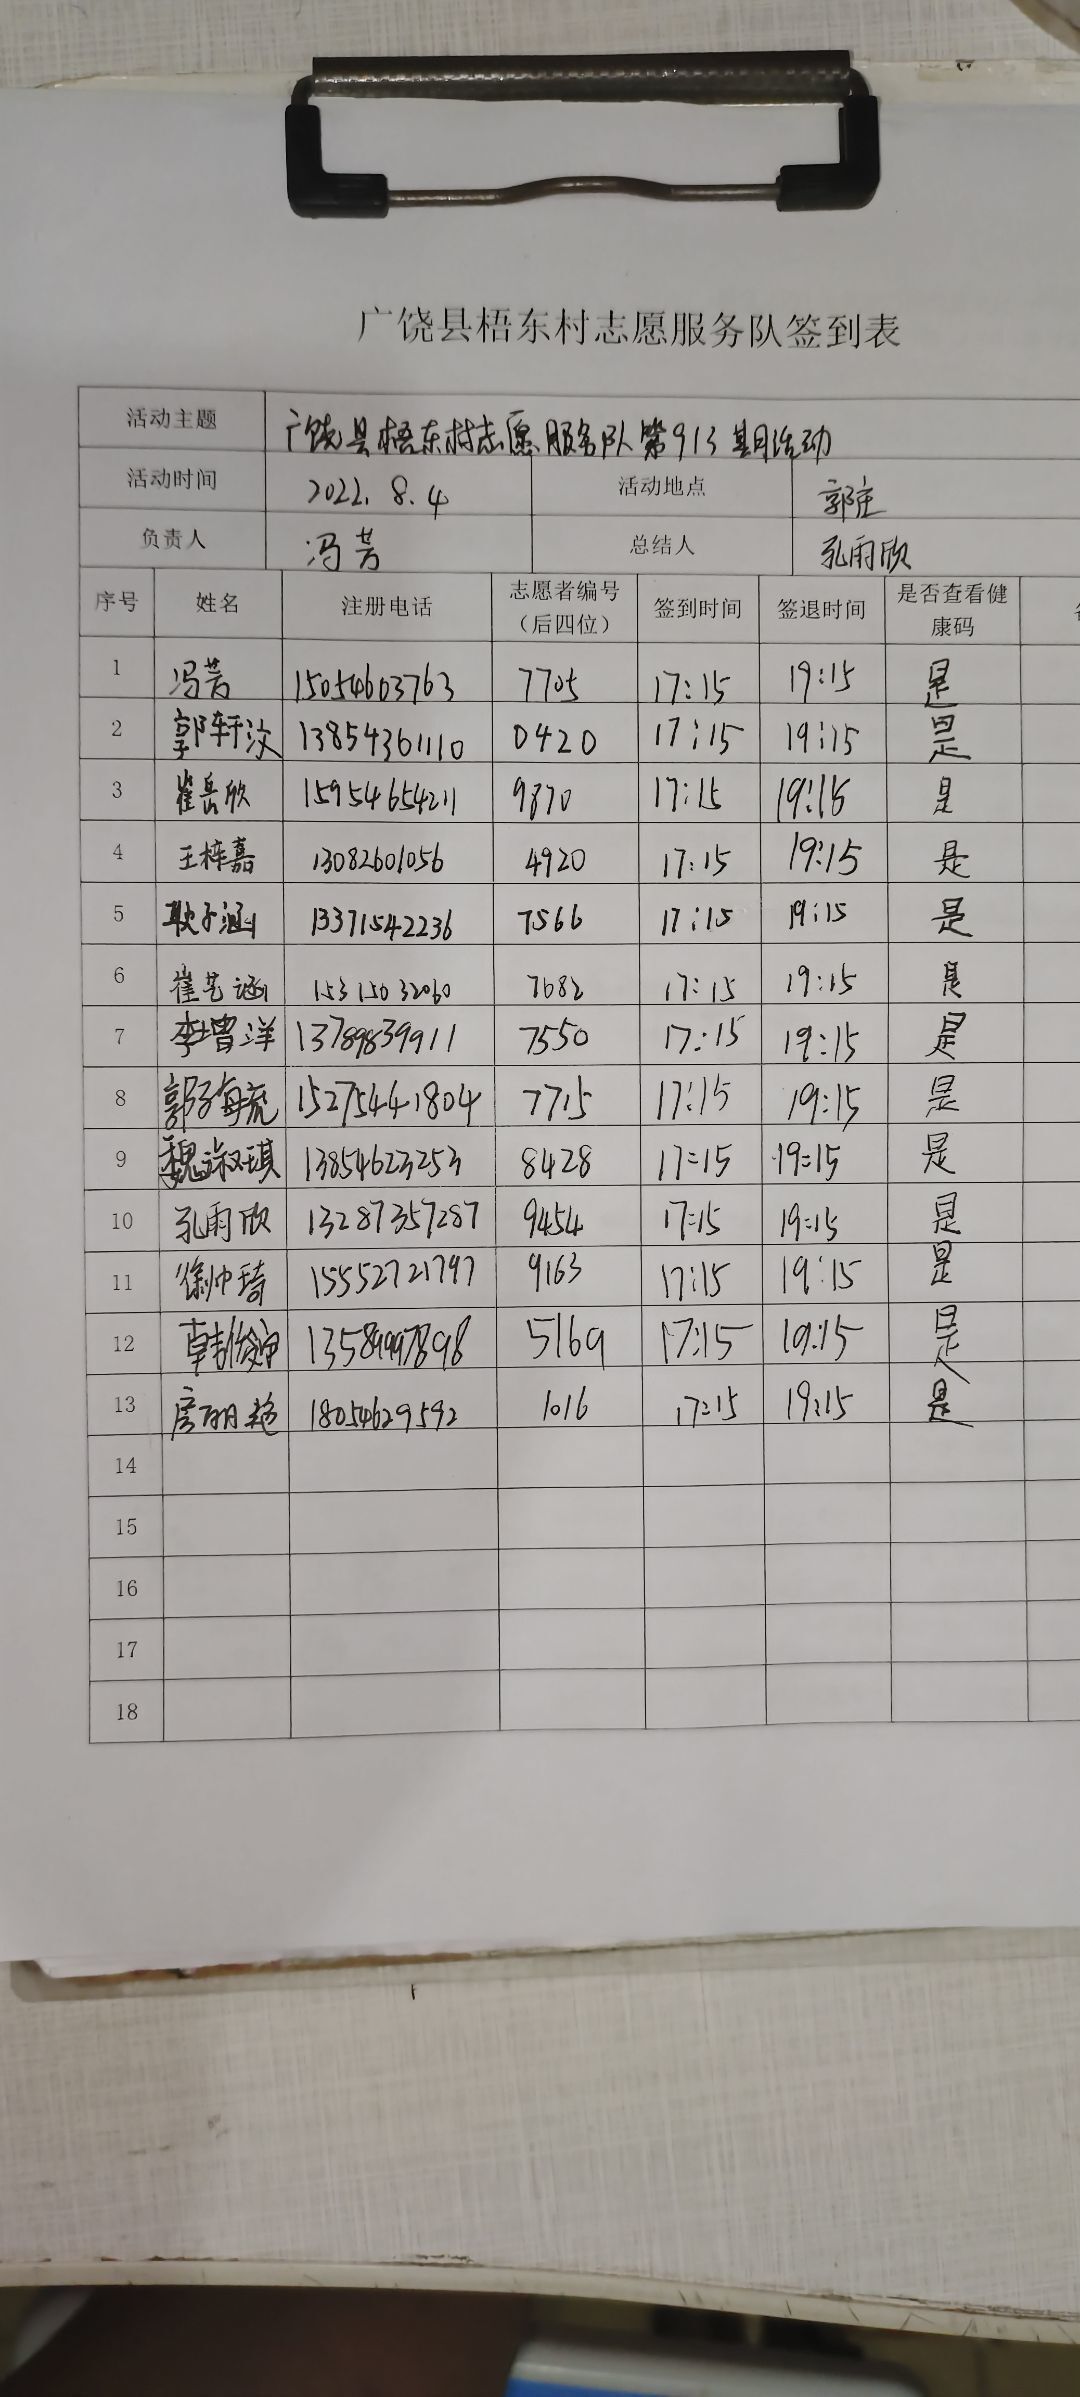 广饶县梧东村志愿服务队签到表
活动主题 广饶县梧东村志愿服务队第913期活动
活动时间 2022.8.4 活动地点 郭庄
负责人 冯芳 总结人 孔雨欣
序号 姓名 注册电话 志愿者编号（后四位） 签到时间 签退时间 是否查看健康码
1 冯芳 15054603763 7705 17:15 19:15 是
2 郭轩汶 13854361110 0420 17:15 19:15 是
3 崔岳欣 15954654211 9870 17:15 19:15 是
4 王梓嘉 13082601056 4920 17:15 19:15 是
5 耿子涵 13371542236 7566 17:15 19:15 是
6 崔艺涵 15315032060 7682 17:15 19:15 是
7 李增洋 13789839911 7550 17:15 19:15 是
8 郭子毓 15275441804 7715 17:15 19:15 是
9 魏淑琪 13854623253 8428 17:15 19:15 是
10 孔雨欣 13287357287 9454 17:15 19:15 是
11 徐帅琦 15552721797 9163 17:15 19:15 是
12 13589997898 5169 17:15 19:15 是
13 18054629592 1016 17:15 19:15 是
14
15
16
17
18